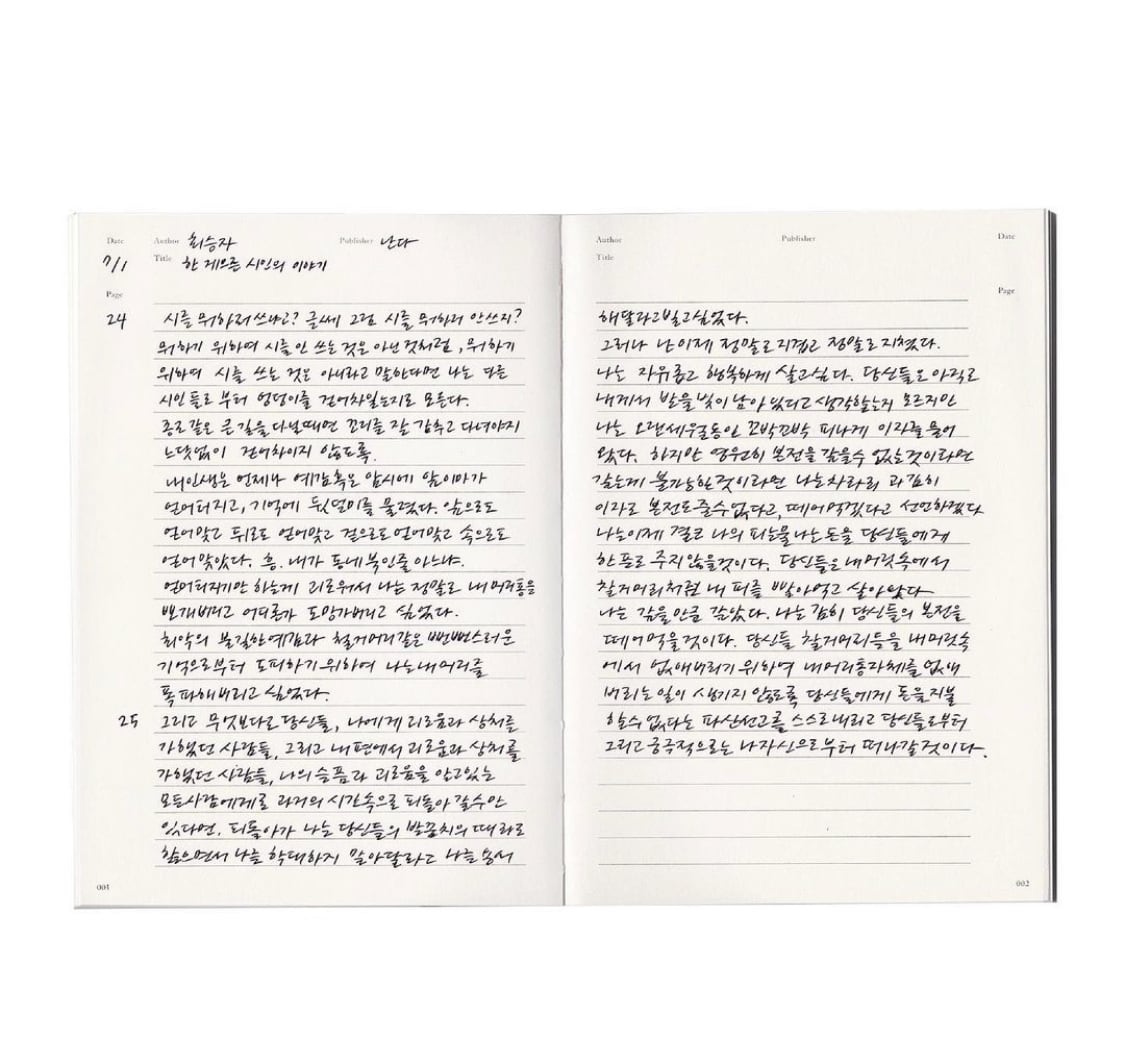 Date
Author 최승자
Publisher 난다
7/1
Title 한 게으른 시인의 이야기
Page
24
시를 뭐하러 쓰냐고? 글쎄 그럼 시를 뭐하러 안쓰지?
뭐하기 위하여 시를 안 쓰는 것은 아닌것처럼, 뭐하기
위하여 시를 쓰는 것은 아니라고 말한다면 나는 다른
시인들로부터 엉덩이를 걷어차일는지도 모른다.
종로 같은 큰 길을 다닐때면 꼬리를 잘 감추고 다녀야지
느닷없이 걷어차이지 않도록.
내 인생은 언제나 예감 혹은 암시에 앞이마가
얻어터지고, 기억에 뒷덜미를 물렸다. 앞으로도
얻어맞고 뒤로도 얻어맞고 겉으로도 얻어맞고 속으로도
얻어맞았다. 흥. 내가 동네북인줄 아느냐.
얻어터지기만 하는게 괴로워서 나는 정말로 내 머리통을
뽀개버리고 어디론가 도망가버리고 싶었다.
최악의 불길한 예감과 철거머리같은 뻔뻔스러운
기억으로부터 도피하기 위하여 나는 내 머리를
폭파해버리고 싶었다.
25
그리고 무엇보다도 당신들, 나에게 괴로움과 상처를
가했던 사람들, 그리고 내 편에서 괴로움과 상처를
가했던 사람들, 나의 슬픔과 괴로움을 안고있는
모든사람에게로 과거의 시간속으로 되돌아 갈수만
있다면, 되돌아가 나는 당신들의 발꿈치의 때라도
핥으면서 나를 학대하지 말아달라고 나를 용서
001
Author
Publisher
Date
Title
Page
해달라고 빌고싶었다.
그러나 난 이제 정말로 지겹고 정말로 지쳤다.
나는 자유롭고 행복하게 살고싶다. 당신들은 아직도
내게서 받을 빚이 남아 있다고 생각할는지 모르지만
나는 오랜세월동안 꼬박꼬박 피나게 이자를 물어
왔다. 하지만 영원히 본전을 갚을수 없는것이라면
갚는게 불가능한 것이라면 나는 차라리 과감히
이자도 본전도 줄수없다고, 떼어먹겠다고 선언하겠다
나는 이제 결코 나의 피눈물나는 돈을 당신들에게
한 푼도 주지 않을것이다. 당신들은 내 머릿속에서
찰거머리처럼 내 피를 빨아먹고 살아왔다
나는 갚을만큼 갚았다. 나는 감히 당신들의 본전을
떼어 먹을 것이다. 당신들 찰거머리들을 내 머릿속
에서 없애버리기 위하여 내 머리통 자체를 없애
버리는 일이 생기지 않도록 당신들에게 돈을 지불
할수 없다는 파산선고를 스스로 내리고 당신들로부터
그리고 궁극적으로는 나 자신으로부터 떠나갈 것이다.
002